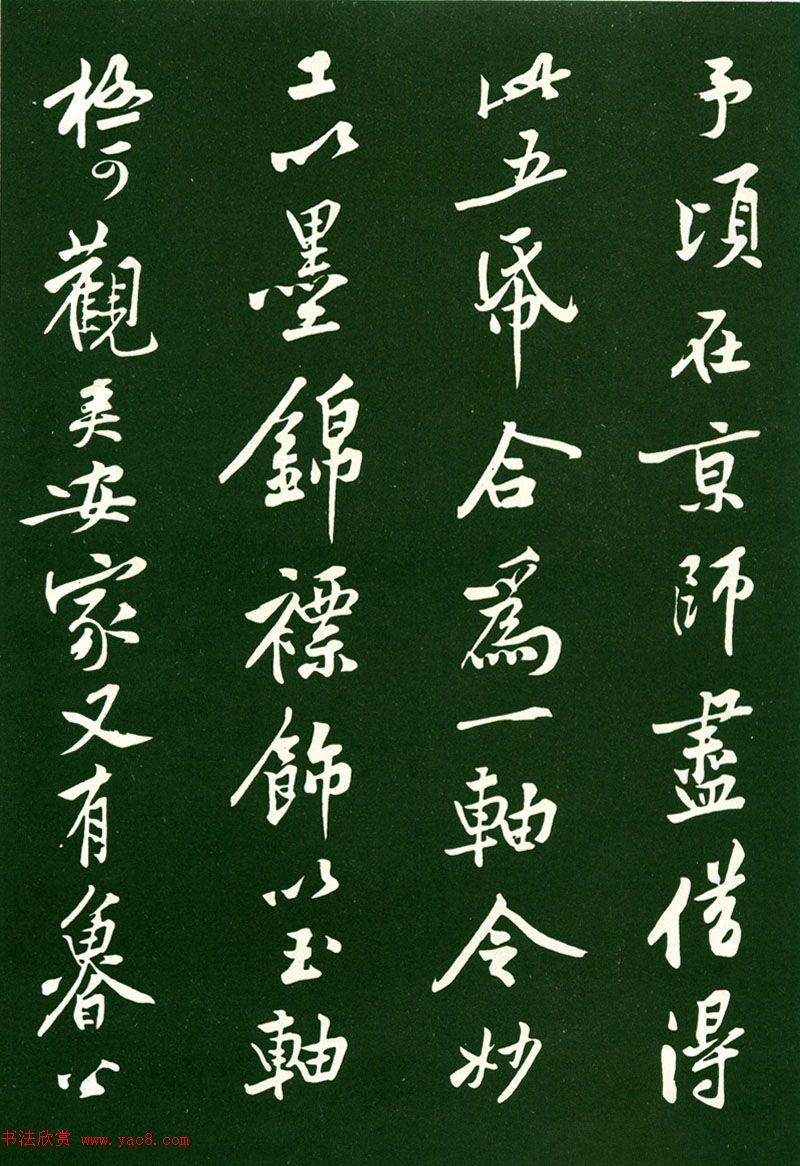 予頃在京師盡借得
此五帋合為一軸令妙
工以墨錦褾飾以玉軸
極可觀吴安家又有魯公
书法欣赏 www.yac8.com